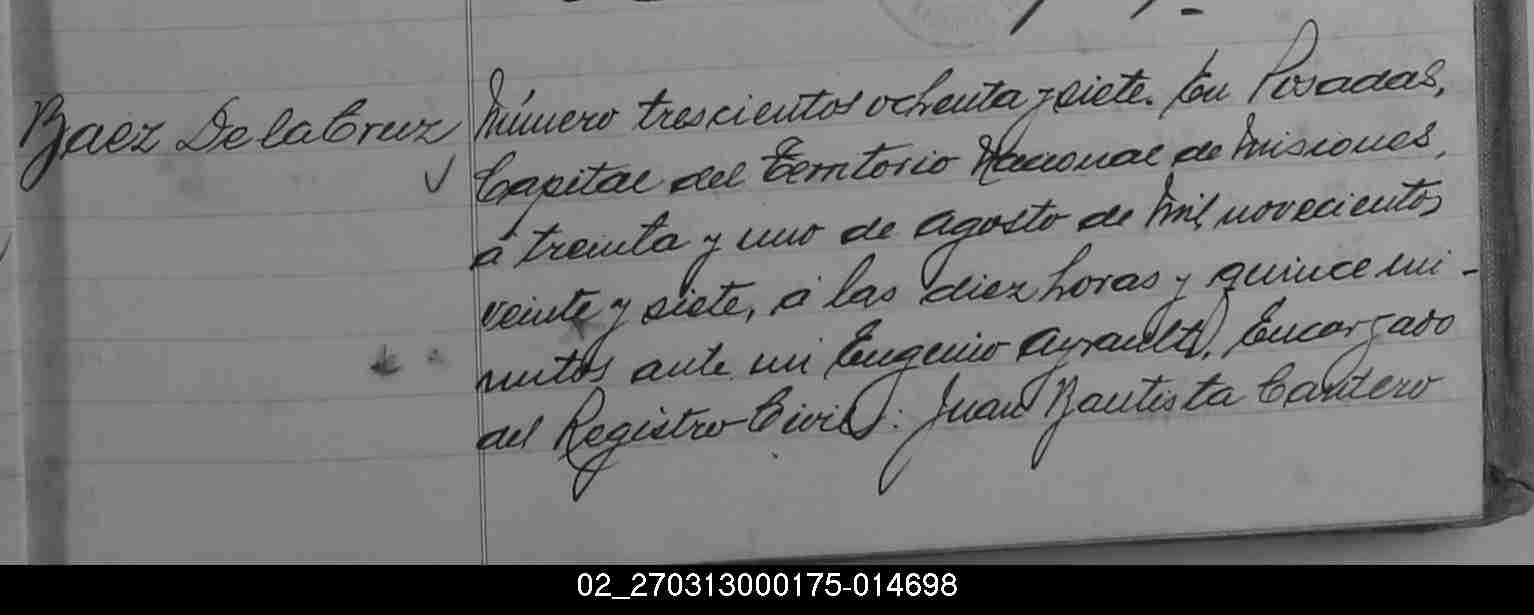 Baez De la Cruz
Número trescientos ochenta y siete. En Posadas,
Capital del Territorio Nacional de Misiones,
á treinta y uno de Agosto de Mil novecientos
veinte y siete, á las diez horas y quince mi-
nutos ante mi Eugenio Ayrault, Encargado
del Registro Civil: Juan Bautista Cantero
02_270313000175-014698